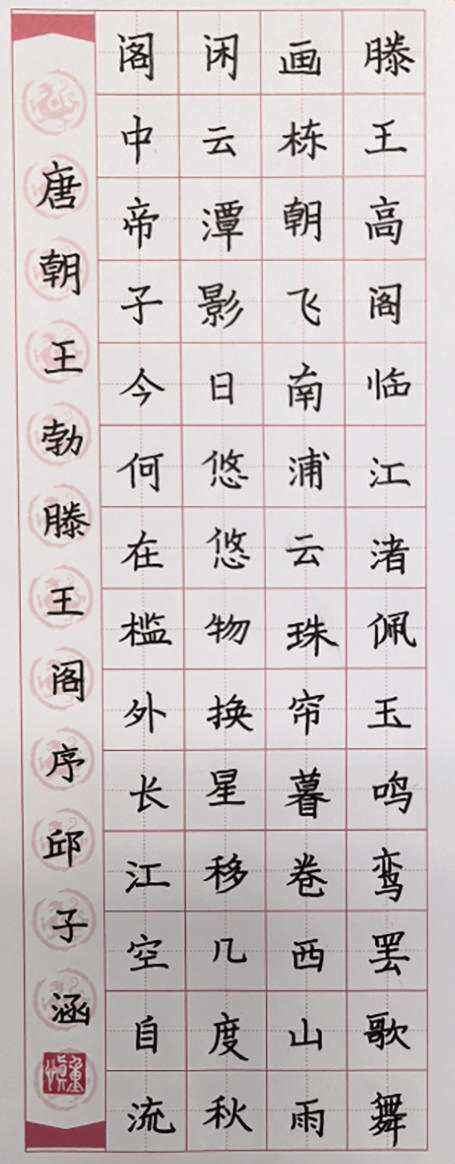 滕王高阁临江渚佩玉鸣鸾罢歌舞
画栋朝飞南浦云珠帘暮卷西山雨
闲云潭影日悠悠物换星移几度秋
阁中帝子今何在槛外长江空自流
唐朝王勃滕王阁序邱子涵